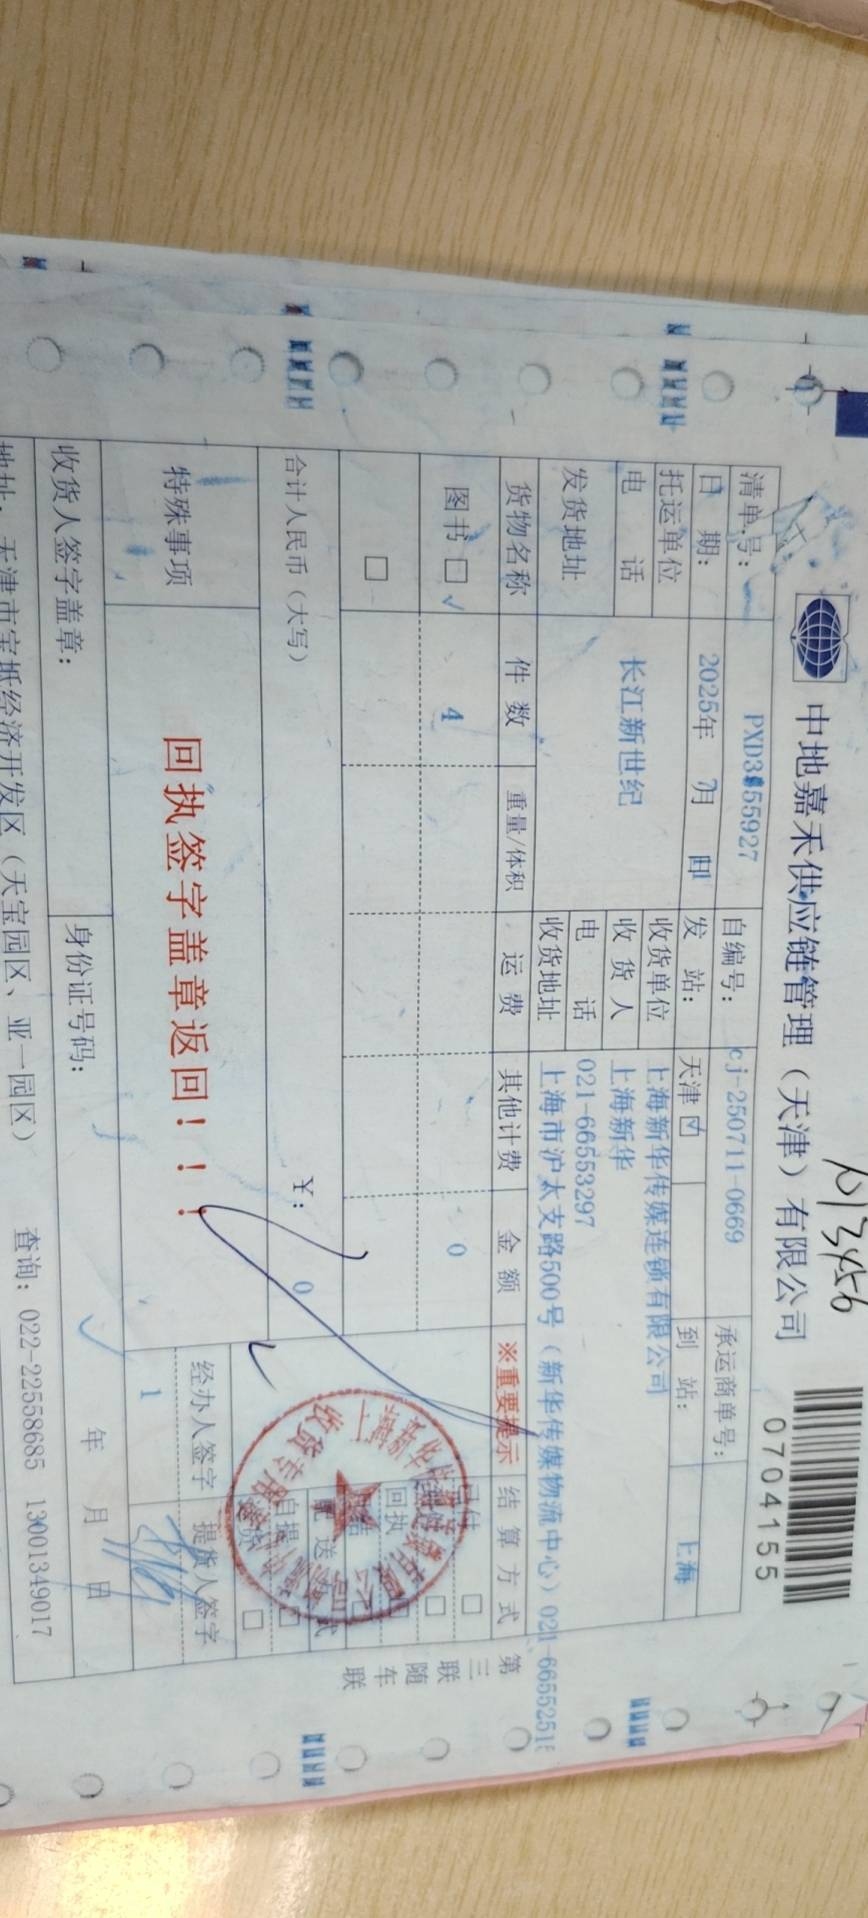 中地嘉禾供应链管理（天津）有限公司
0704155
清单号： 自编号： cj-250711-0669 承运商单号：
日 期： 2025年 7月 发 站： 天津 到 站： 上海
托运单位 长江新世纪 收货单位 上海新华传媒连锁有限公司
电 话 收 货 人 上海新华
电 话 021-66553297
发货地址 收货地址 上海市沪太支路500号（新华传媒物流中心）021-6655251
货物名称 件 数 重量/体积 运 费 其他计费 金 额 ※重要提示 结 算 方 式
图书 □ √ 4 0
□
回执
配 送 方 式
自提 □
合计人民币（大写） ￥： 0
特殊事项 回执签字盖章返回！！！ 经办人签字 提货人签字
1
收货人签字盖章： 身份证号码： 年 月 日
地址：天津市宝坻经济开发区（天宝园区、亚一园区） 查询：022-22558685 13001349017
第三联 随车联